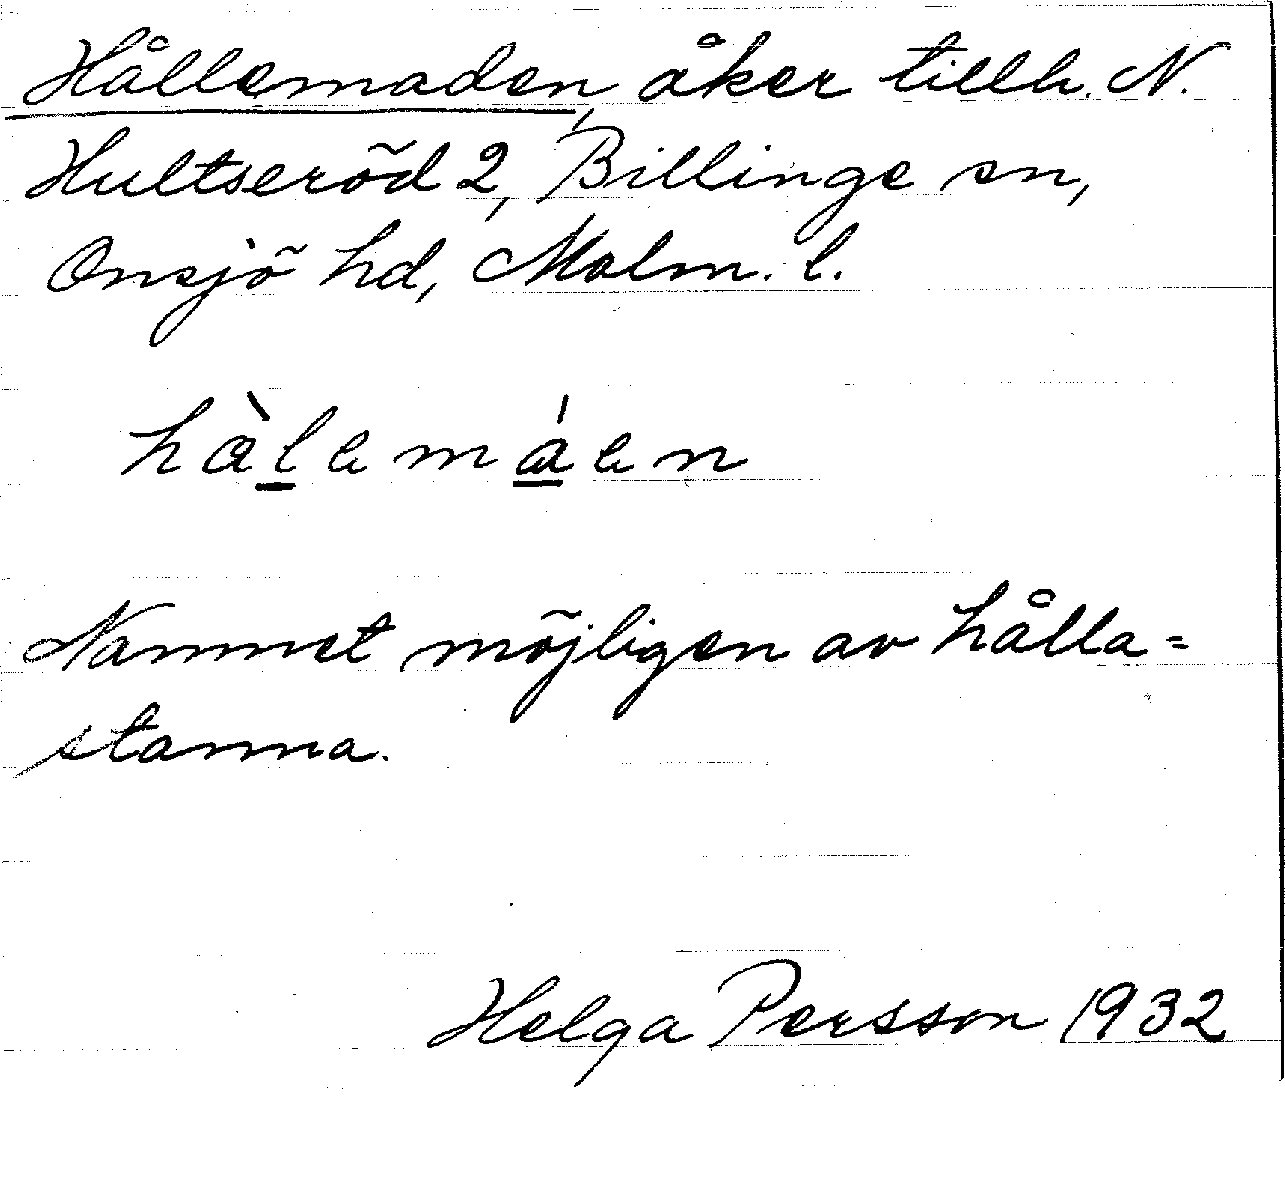 Hållemaden, åker tillh. N.
Hultseröd 2, Billinge sn,
Onsjö hd, Malm. l.
hàlemáen
Namnet möjligen av hålla =
stanna.
Helga Persson 1932